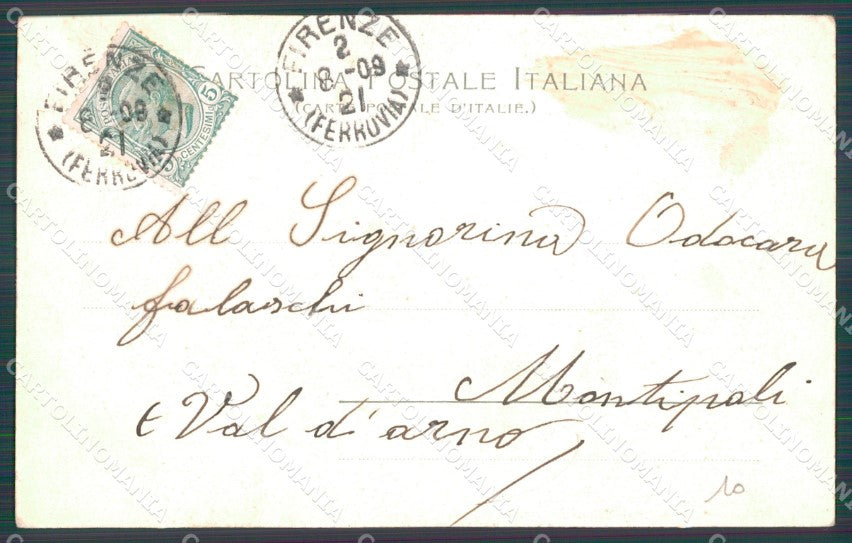 FIRENZE
2
8-09
21
(FERROVIA)
FIRENZE
2
8-09
21
(FERROVIA)
5
CENTESIMI
CARTOLINA POSTALE ITALIANA
(CARTE POSTALE D'ITALIE.)
All Signorina Odocara
falaschi
Montipoli
Val d'arno
10
CARTOLINOMANIA